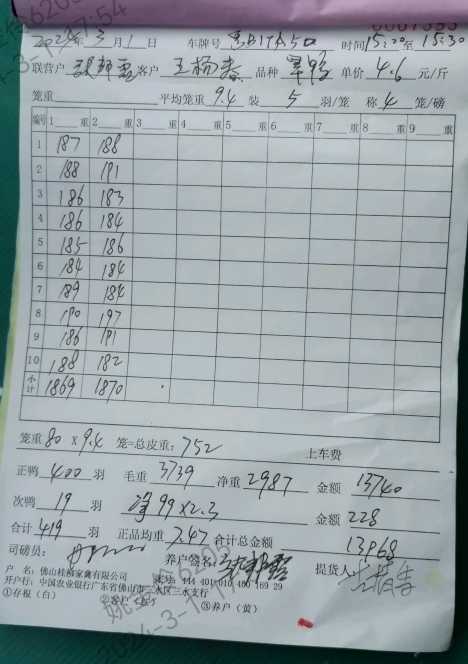 2024年3月1日 车牌号 时间15:20至15:30
联营户 客户 王杨春 品种 单价 4.6 元/斤
笼重 平均笼重 9.4 装 5 羽/笼 称 4 笼/磅
编号 1 重 2 重 3 重 4 重 5 重 6 重 7 重 8 重 9 重
1 187 188
2 188 191
3 186 183
4 186 184
5 185 186
6 184 184
7 189 184
8 190 197
9 186 191
10 188 182
小计 1869 1870
笼重 80 x 9.4 笼=总皮重: 752 上车费
正鸭 400 羽 毛重 3739 净重 2987 金额 13740
次鸭 19 羽 净99 x 2.3 金额 228
合计 419 羽 正品均重 7.47 合计总金额 13968
司磅员: 养户签名: 提货人:
户 名: 佛山桂柳家禽有限公司 账号: 444 401 010 400 169 29
开户行: 中国农业银行广东省佛山市三水区三水支行
①存根(白) ②客户 ③养户(黄)